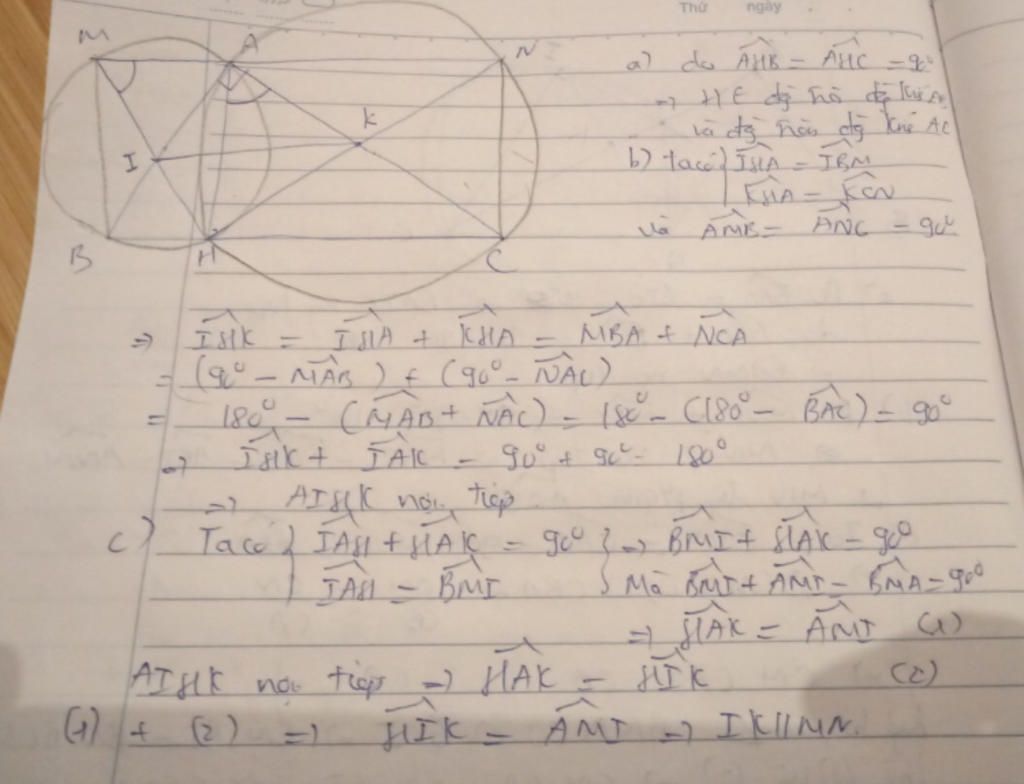 Thứ ngày
M A N
K
I
B H C
a) do AHB = AHC = 90°
=> H ∈
và AC
b) ta có { IHA = IBM
KHA = KCN
và AMB = ANC = 90°
=> IHK = IHA + KHA = MBA + NCA
= (90° - MAB) + (90° - NAC)
= 180° - (MAB + NAC) = 180° - (180° - BAC) = 90°
=> IHK + IAK = 90° + 90° = 180°
=> AIHK nội tiếp
c) Ta có { IAH + HAK = 90° } => BMI + HAK = 90°
IAH = BMI Mà BMI + AMI = BMA = 90°
=> HAK = AMI (1)
AIHK nội tiếp => HAK = HIK (2)
(1) + (2) => HIK = AMI => IK//MN.